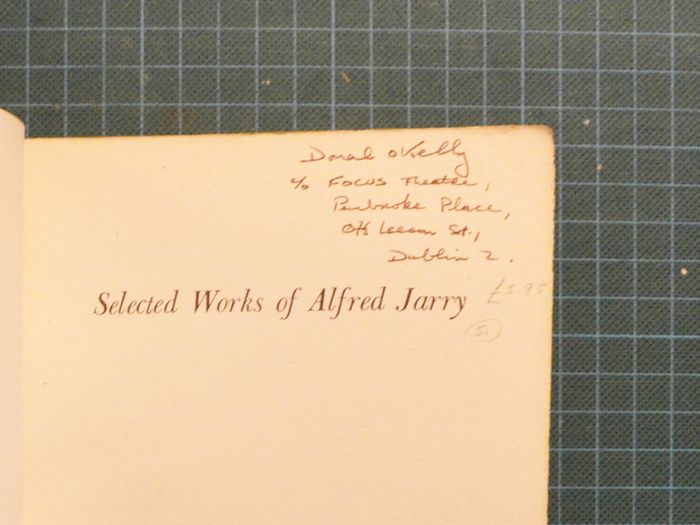 Donal O'Kelly
c/o FOCUS Theatre,
Pembroke Place,
Off Leeson St.,
Dublin 2.
Selected Works of Alfred Jarry
£5.95